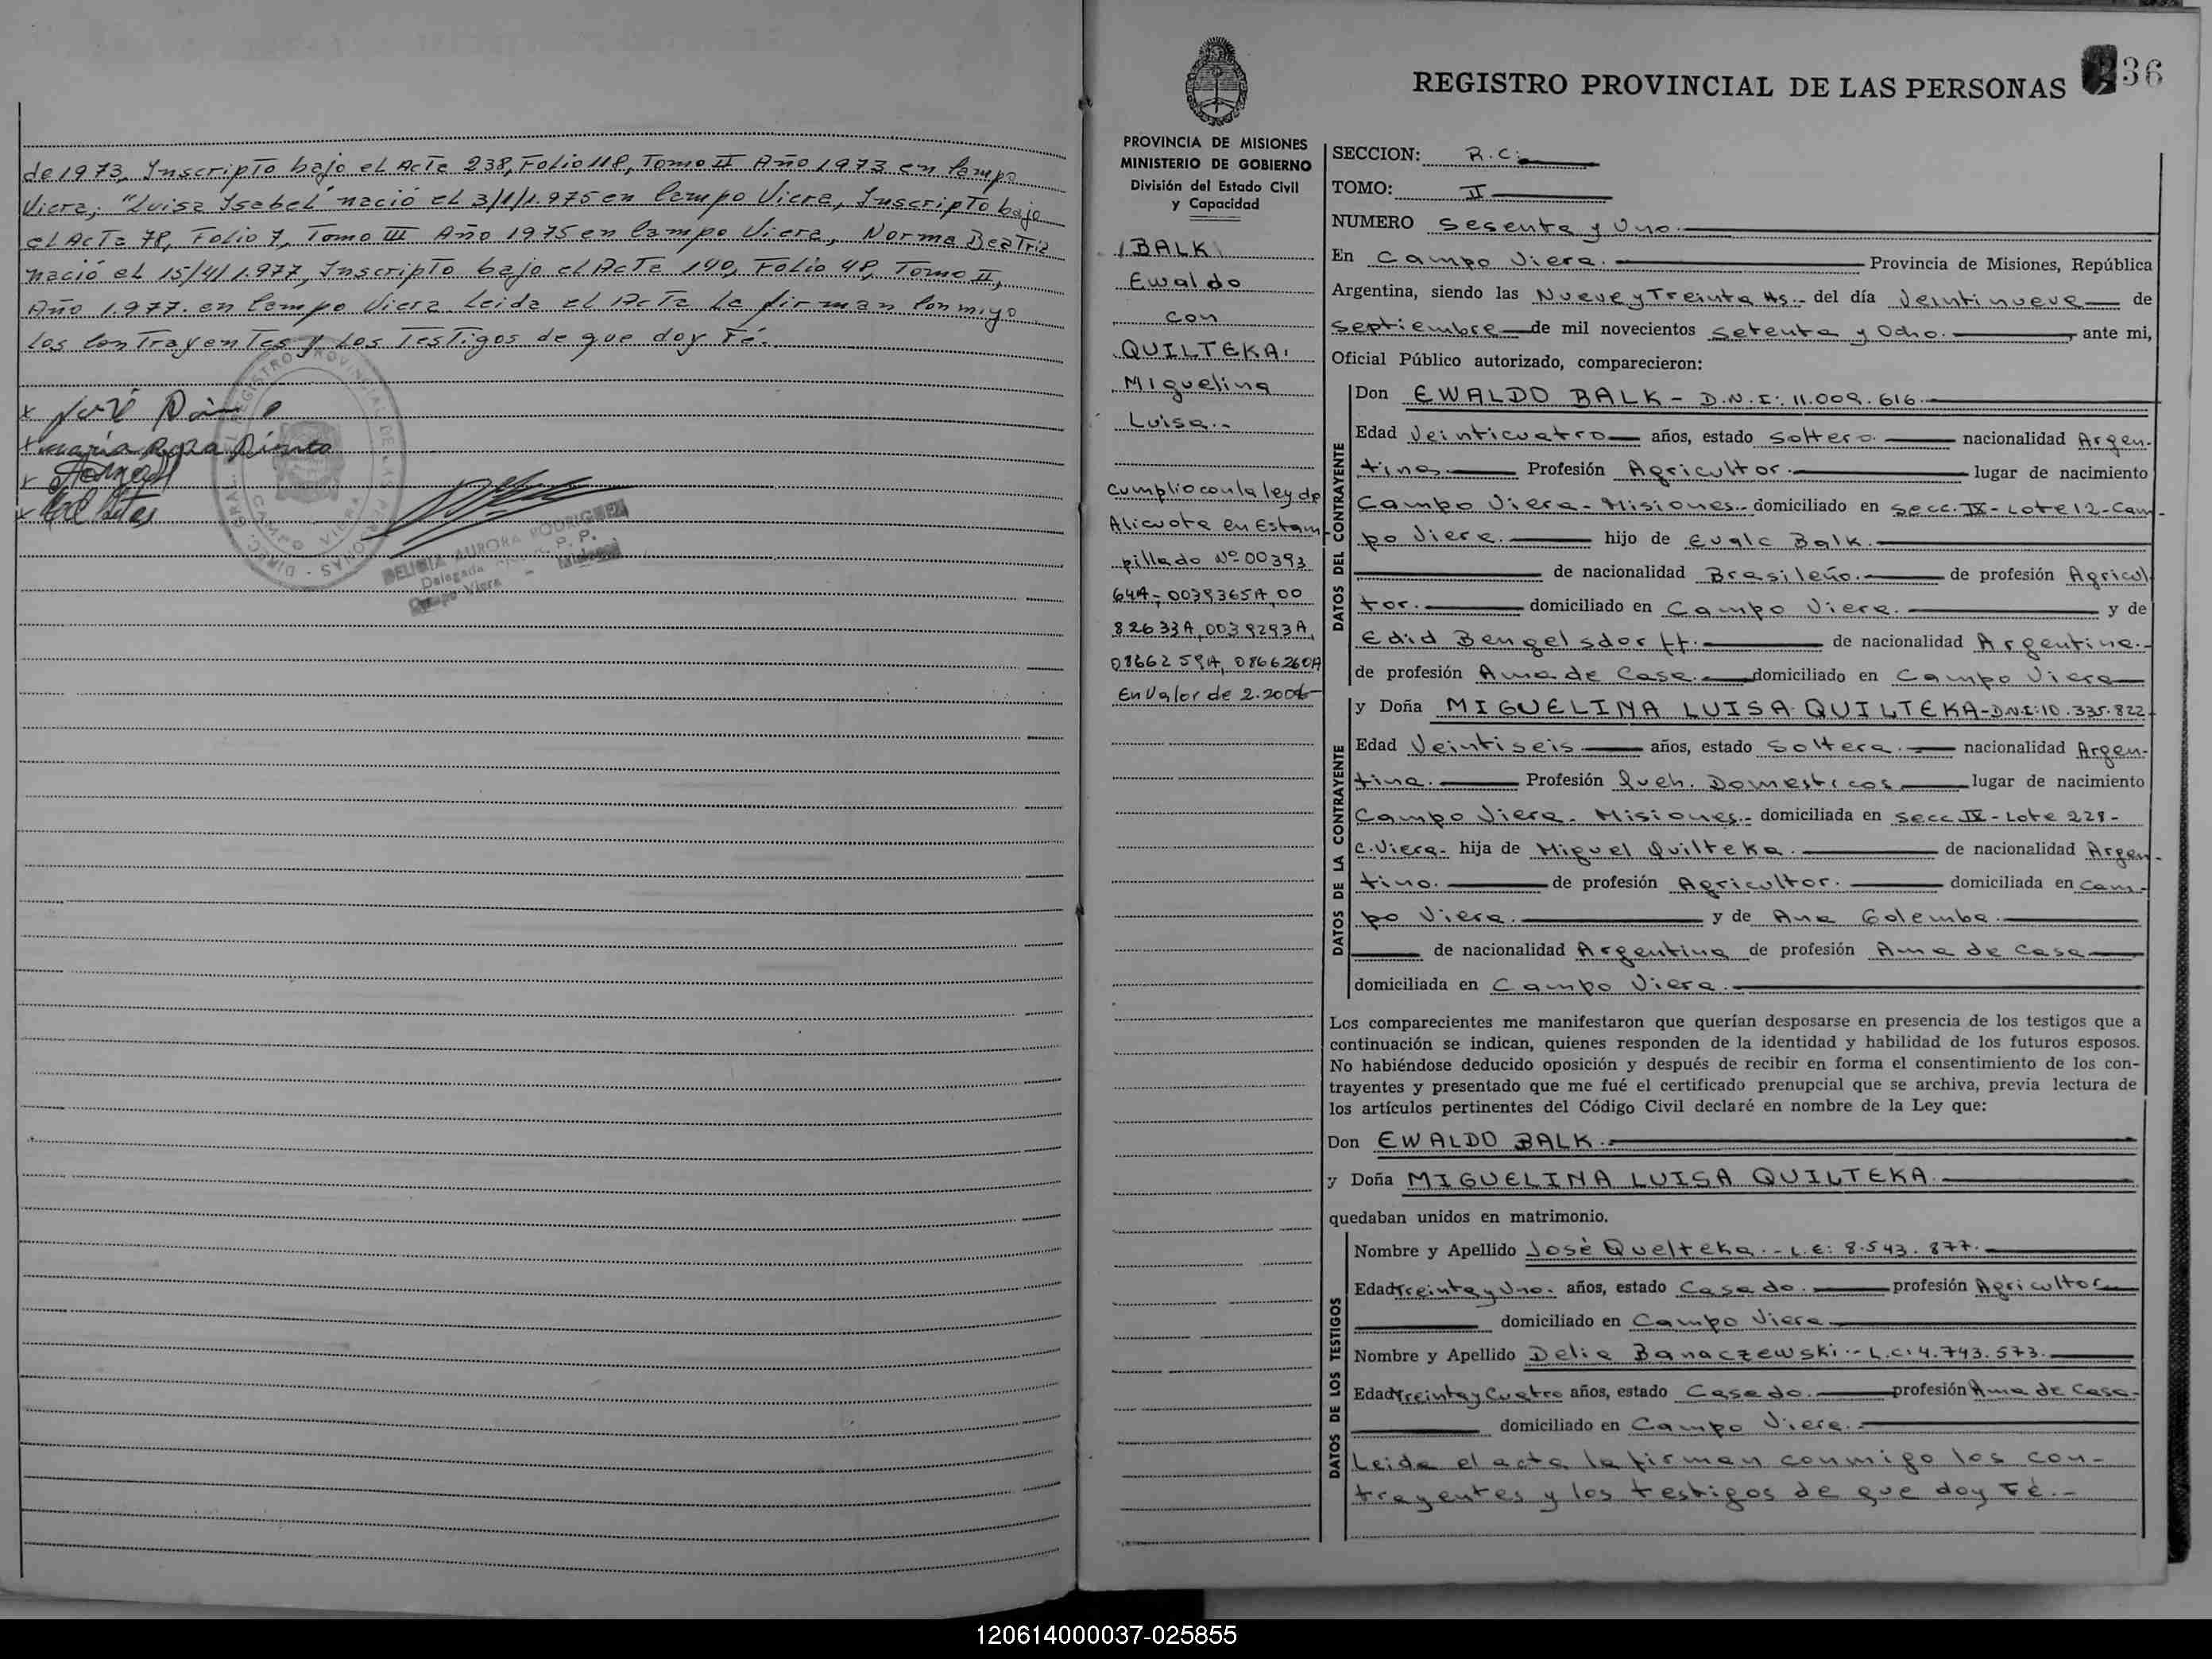 de 1973, Inscripto bajo el Acta 238, Folio 118, Tomo II Año 1973 en Campo
Viera, "Luisa Isabel" nació el 3/1/1.975 en Campo Viera, Inscripto bajo
el Acta 78, Folio 7, Tomo III Año 1975 en Campo Viera, Norma Beatriz
nació el 15/4/1.977, Inscripto bajo el Acta 140, Folio 48, Tomo II,
Año 1.977. en Campo Viera. Leida el Acta la firman conmigo
los contrayentes y los Testigos de que doy Fé.-
x José
x maria Rosa Pinto
x
x
DIREC. GRAL. DEL REGISTRO PROVINCIAL DE LAS PERSONAS - CAMPO VIERA
AURORA RODRIGUEZ
Delegada R. P. P.
Campo Viera -
36
REGISTRO PROVINCIAL DE LAS PERSONAS
PROVINCIA DE MISIONES
MINISTERIO DE GOBIERNO
División del Estado Civil
y Capacidad
BALK
Ewaldo
con
QUILTEKA,
Miguelina
Luisa.-
Cumplio con la ley de
Alicuota en Estam
pillado Nº 00393
64A-, 0039365A, 00
82633A, 0039293A,
0866259A, 0866260A
En Valor de 2.200
SECCION: R.C.
TOMO: II
NUMERO Sesenta y Uno.
En Campo Viera. Provincia de Misiones, República
Argentina, siendo las Nueve y Treinta Hs.- del día Veintinueve de
Septiembre de mil novecientos Setenta y Ocho. ante mi,
Oficial Público autorizado, comparecieron:
DATOS DEL CONTRAYENTE
Don EWALDO BALK - D.N.I: 11.009.616.
Edad Veinticuatro años, estado Soltero. nacionalidad Argen-
tino. Profesión Agricultor. lugar de nacimiento
Campo Viera - Misiones.- domiciliado en Secc. IX - Lote 12 - Cam-
po Viera. hijo de Evalc Balk.
de nacionalidad Brasileño. de profesión Agricul
tor. domiciliado en Campo Viera. y de
Edid Bengelsdorff. de nacionalidad Argentina.-
de profesión Ama de Casa. domiciliado en Campo Viera
DATOS DE LA CONTRAYENTE
y Doña MIGUELINA LUISA QUILTEKA - D.N.I: 10.335.822
Edad Veintiseis años, estado Soltera. nacionalidad Argen-
tina. Profesión Queh. Domesticos lugar de nacimiento
Campo Viera - Misiones.- domiciliada en Secc IX - Lote 228 -
C. Viera - hija de Miguel Quilteka. de nacionalidad Argen-
tino. de profesión Agricultor. domiciliada en Cam-
po Viera. y de Ana Golemba.
de nacionalidad Argentina de profesión Ama de Casa
domiciliada en Campo Viera.
Los comparecientes me manifestaron que querían desposarse en presencia de los testigos que a
continuación se indican, quienes responden de la identidad y habilidad de los futuros esposos.
No habiéndose deducido oposición y después de recibir en forma el consentimiento de los con-
trayentes y presentado que me fué el certificado prenupcial que se archiva, previa lectura de
los artículos pertinentes del Código Civil declaré en nombre de la Ley que:
Don EWALDO BALK.
y Doña MIGUELINA LUISA QUILTEKA.
quedaban unidos en matrimonio.
DATOS DE LOS TESTIGOS
Nombre y Apellido José Quelteka.- L.E: 8.543.877.
Edad Treinta y Uno. años, estado Casado. profesión Agricultor
domiciliado en Campo Viera
Nombre y Apellido Delia Banaczewski.- L.C: 4.743.573.
Edad Treinta y Cuatro años, estado Casado. profesión Ama de Casa-
domiciliado en Campo Viera.
Leida el acta la firman conmigo los con-
trayentes y los testigos de que doy Fé.-
120614000037-025855